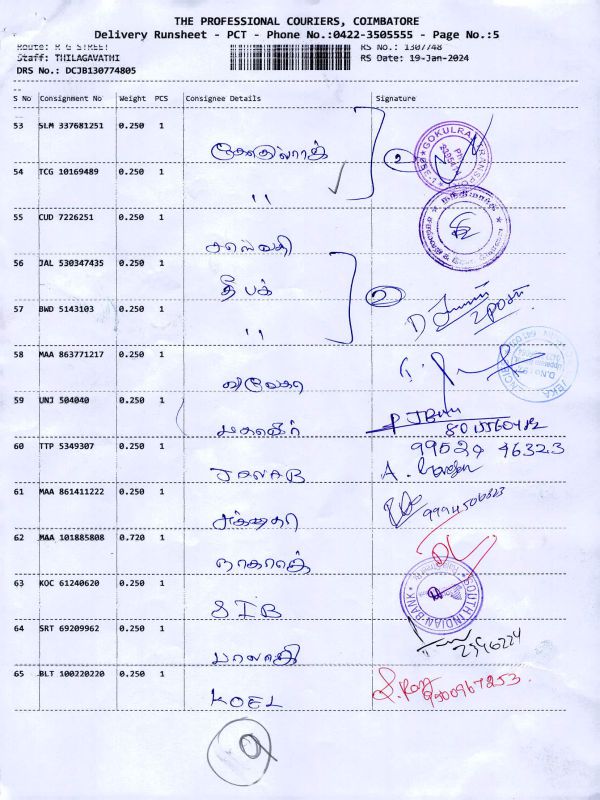 THE PROFESSIONAL COURIERS, COIMBATORE
Delivery Runsheet - PCT - Phone No.:0422-3505555 - Page No.:5
Route: R G STREET
RS No.: 1307748
Staff: THILAGAVATHI
RS Date: 19-Jan-2024
DRS No.: DCJB130774805
S No Consignment No Weight PCS Consignee Details Signature
53 SLM 337681251 0.250 1
2
GOKULRAJ TRANSPORT
54 TCG 10169489 0.250 1
"
55 CUD 7226251 0.250 1
56 JAL 530347435 0.250 1
தீபக்
2
57 BWD 5143103 0.250 1
"
58 MAA 863771217 0.250 1
59 UNJ 504040 0.250 1
60 TTP 5349307 0.250 1
99529 46323
JANAB
61 MAA 861411222 0.250 1
62 MAA 101885808 0.720 1
நாகராஜ்
63 KOC 61240620 0.250 1
SIB
SOUTH INDIAN BANK
64 SRT 69209962 0.250 1
பாலாஜி
65 BLT 100220220 0.250 1
KOEL
9